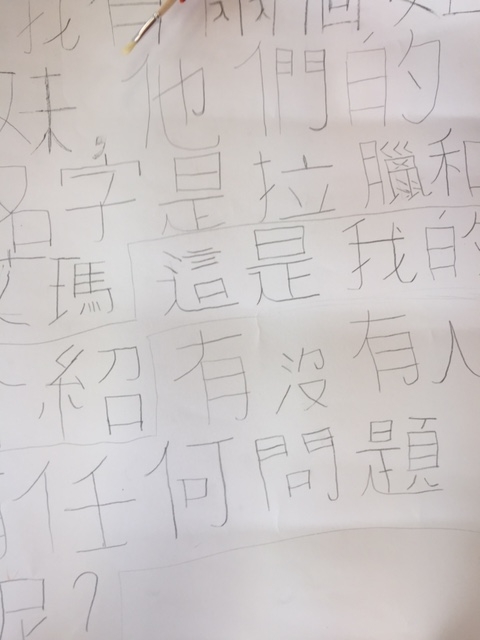 我有兩個姐
妹他們的
名字是拉臘和
艾瑪這是我的
介紹有沒有人
有任何問題
呢？